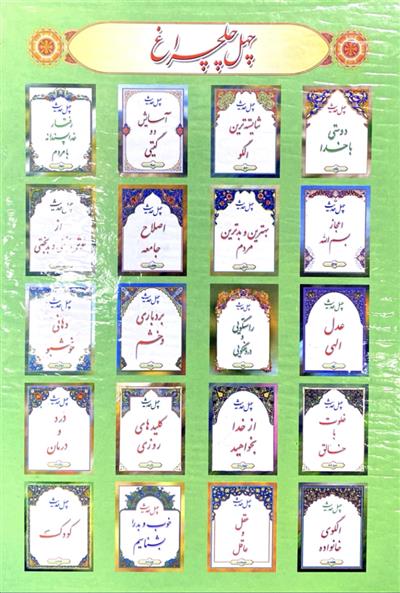 چهل چلچراغ
چهل حدیث
دوستی
با خدا
چهل حدیث
شایسته‌ترین
الگو
چهل حدیث
آسایش
دو
گیتی
چهل حدیث
رفتار
خداپسندانه
با مردم
چهل حدیث
اعجاز
بسم الله
چهل حدیث
بهترین و بدترین
مردم
چهل حدیث
اصلاح
جامعه
چهل حدیث
از
بدبختی
چهل حدیث
عدل
الهی
چهل حدیث
راستگویی
و
دروغگویی
چهل حدیث
بردباری
و خشم
چهل حدیث
دهانی
خوشبو
چهل حدیث
خلوت
با
خالق
چهل حدیث
از خدا
بخواهید
چهل حدیث
کلیدهای
روزی
چهل حدیث
درد
و
درمان
چهل حدیث
الگوی
خانواده
چهل حدیث
عقل
و
عاقل
چهل حدیث
خوب و بد را
بشناسیم
چهل حدیث
کودک